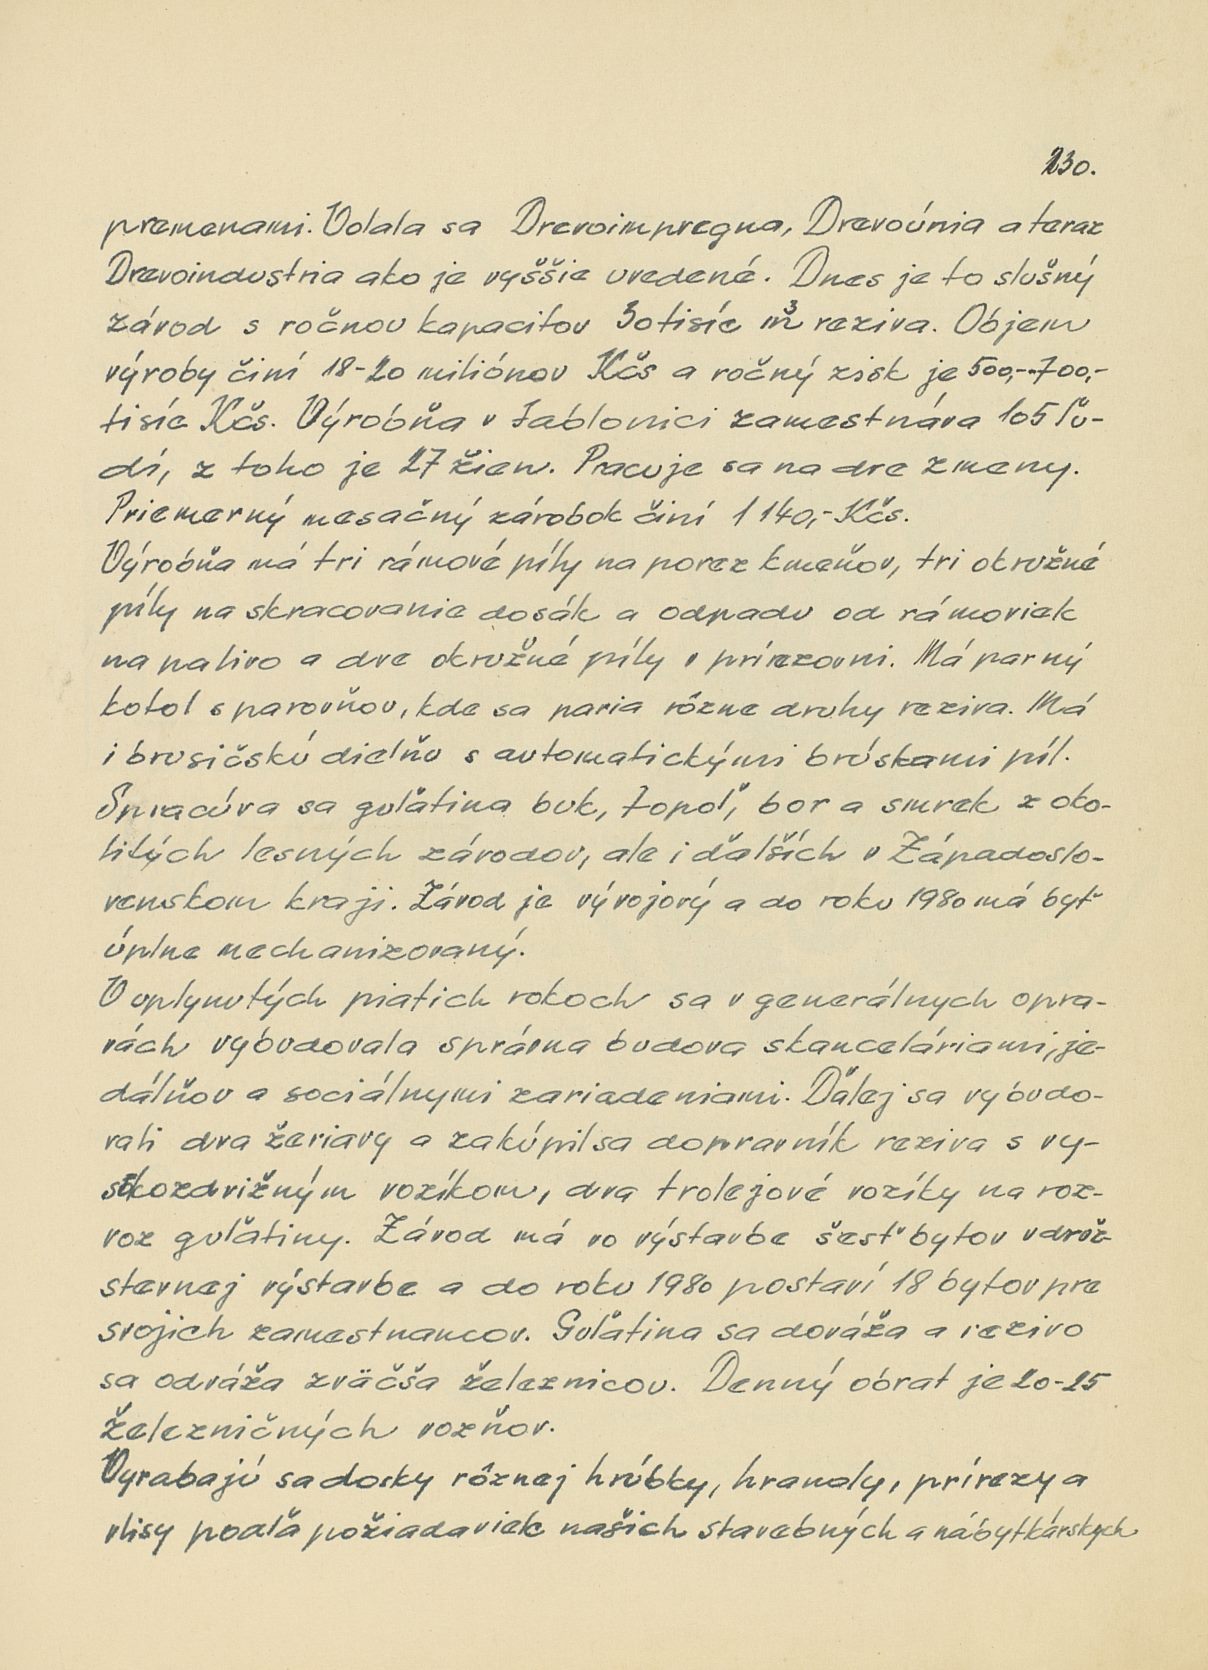 230.
premenami. Volala sa Drevoimpregna, Drevoúnia a teraz
Drevoindustria ako je vyššie uvedené. Dnes je to slušný
závod s ročnou kapacitou 30 tisíc m³ reziva. Objem
výroby činí 18-20 miliónov Kčs a ročný zisk je 500,--700,-
tisíc Kčs. Výrobňa v Jablonici zamestnáva 105 ľu-
dí, z toho je 27 žien. Pracuje sa na dve zmeny.
Priemerný mesačný zárobok činí 1 140,- Kčs.
Výrobňa má tri rámové píly na porez kmeňov, tri okružné
píly na skracovanie dosák a odpadu od rámoviek
na palivo a dve okružné píly v prírezovni. Má parný
kotol s parovňou, kde sa paria rôzne druhy reziva. Má
i brusičskú dielňu s automatickými brúskami píl.
Spracúva sa guľatina buk, topoľ, bor a smrek z oko-
litých lesných závodov, ale i ďalších v Západoslo-
venskom kraji. Závod je vývojový a do roku 1980 má byť
úplne mechanizovaný.
V uplynutých piatich rokoch sa v generálnych opra-
vách vybudovala správna budova s kanceláriami, je-
dálňou a sociálnymi zariadeniami. Ďalej sa vybudo-
vali dva žeriavy a zakúpil sa dopravník reziva s vy-
sokozdvižným vozíkom, dva trolejové vozíky na roz-
voz guľatiny. Závod má vo výstavbe šesť bytov v druž-
stevnej výstavbe a do roku 1980 postaví 18 bytov pre
svojich zamestnancov. Guľatina sa dováža a rezivo
sa odváža zväčša železnicou. Denný obrat je 20-25
železničných vozňov.
Vyrabajú sa dosky rôznej hrúbky, hranoly, prírezy a
vlisy podľa požiadaviek našich stavebných a nábytkárskych